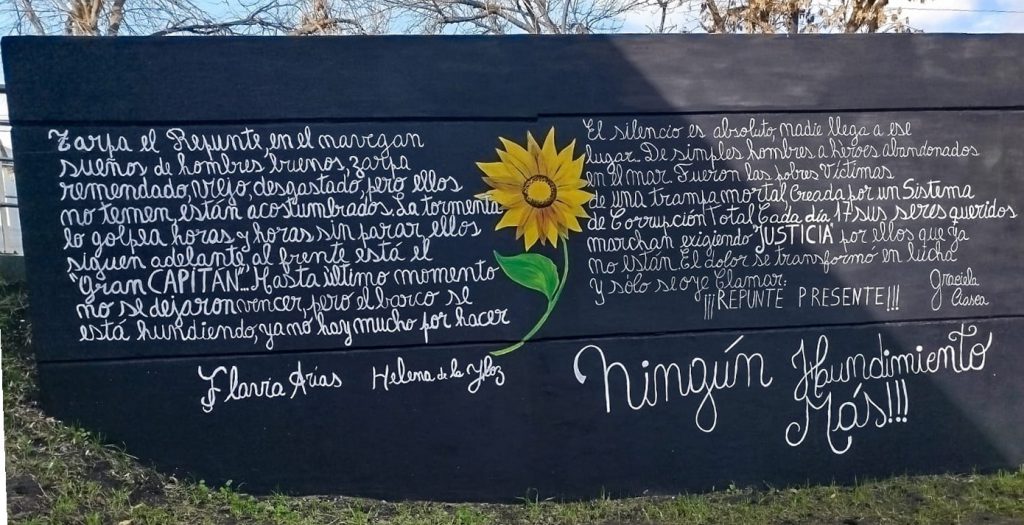 Zarpa el Repunte, en el navegan
sueños de hombres buenos, zarpa
remendado, viejo, desgastado, pero ellos
no temen, están acostumbrados. La tormenta
lo golpea horas y horas sin parar, ellos
siguen adelante, al frente está el
"gran CAPITÁN"... Hasta último momento
no se dejaron vencer, pero el barco se
está hundiendo, ya no hay mucho por hacer
Flavia Arias Helena de la
El silencio es absoluto, nadie llega a ese
lugar. De simples hombres a héroes abandonados
en el mar. Fueron las pobres Víctimas
de una trampa mortal Creada por un Sistema
de Corrupción Total. Cada día 17 sus seres queridos
marchan exigiendo "JUSTICIA" por ellos que ya
no están. El dolor se transformó en lucha
Y sólo se oye Clamar:
¡¡¡REPUNTE PRESENTE!!!
Graciela
Ningún Hundimiento
Más!!!